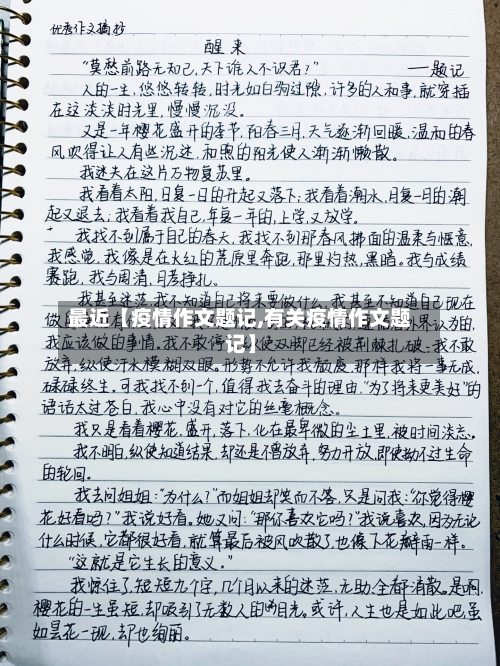 优秀作文摘抄
醒来
“莫愁前路无知己,天下谁人不识君?” ——题记
人的一生,悠悠转转,时光如白驹过隙,许多的人和事,就穿插
在这淡淡时光里,慢慢沉没。
又是一年樱花盛开的季节,阳春三月,天气逐渐回暖,温和的春
风吹得让人有些沉迷,和煦的阳光使人渐渐懒散。
我迷失在这片万物复苏里。
我看着太阳,日复一日的升起又落下;我看着潮水,月复一月的潮
起又退去;我看着我自己,年复一年的,上学,又放学。
我找不到属于自己的春天,我找不到那春风拂面的温柔与惬意,
我感觉,我像是在火红的荒原里奔跑,那里灼热,黑暗。我与成绩
赛跑,我与周清,月考挣扎。
我甚至迷茫,我不知道自己将来要做什么,我甚至不知道自己现在
做
最近【疫情作文题记,有关疫情作文题
记】
外界认为的,
我应该做的事情。我不敢停
纵使双脚已经被荆棘扎破;我不敢
放弃,纵使汗水模糊双眼。形势不允许我放慢,那样我将一事无成,
碌碌终生,可我找不到一个,值得我去奋斗的理由,“为了将来更美好”的
话语太过苍白,我心中没有对它的丝毫概念。
我只是看着樱花,盛开,落下,化在最卑微的尘土里,被时间淡忘。
我不明白,纵使知道结果,却还是不曾放弃,努力开放,即使拗不过生命
的轮回。
我去问姐姐:“为什么?”而姐姐却笑而不答,只是问我:“你觉得樱
花好看吗?”我说好看。她又问:“那你喜欢它吗?”我说喜欢,因为无论
什么时候,它都很好看,就算最后被风吹散了,也像下花瓣雨一样。
“这就是它生长的意义。”
我惊住了,短短九个字,几个月以来的迷茫,无助,全都消散。是啊,
樱花的一生虽短,却吸引了无数人的目光。或许,人生也是如此吧,虽
如昙花一现,却也绚丽。